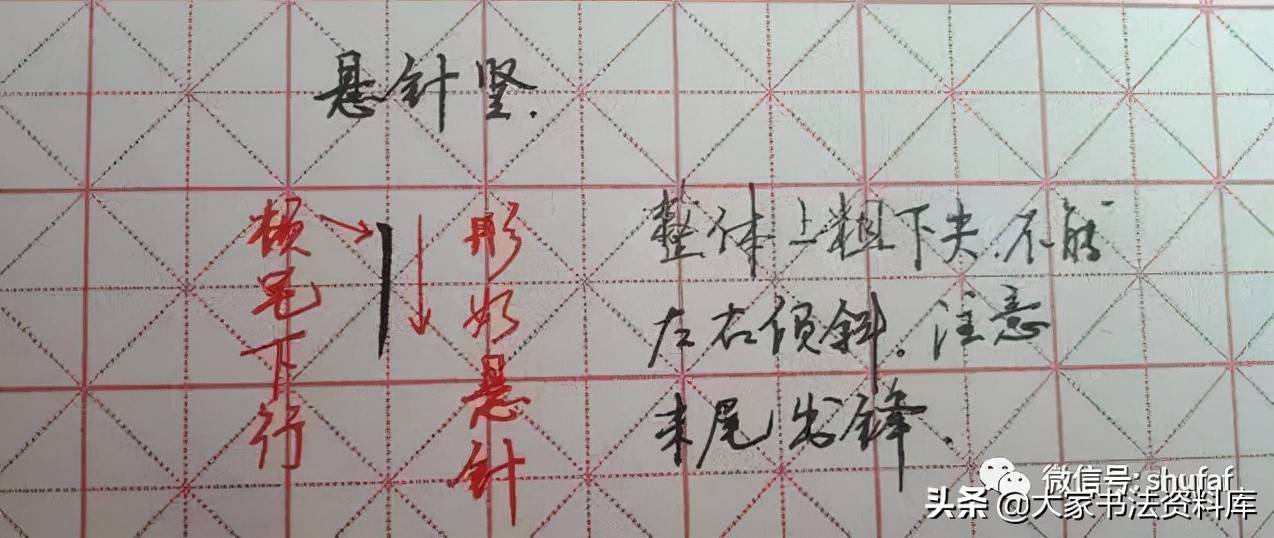 悬针竖.
顿笔下行
形如悬针
整体上粗下尖.不能
左右倾斜。注意
末尾出锋.
微信号: shufaf
头条 @大家书法资料库